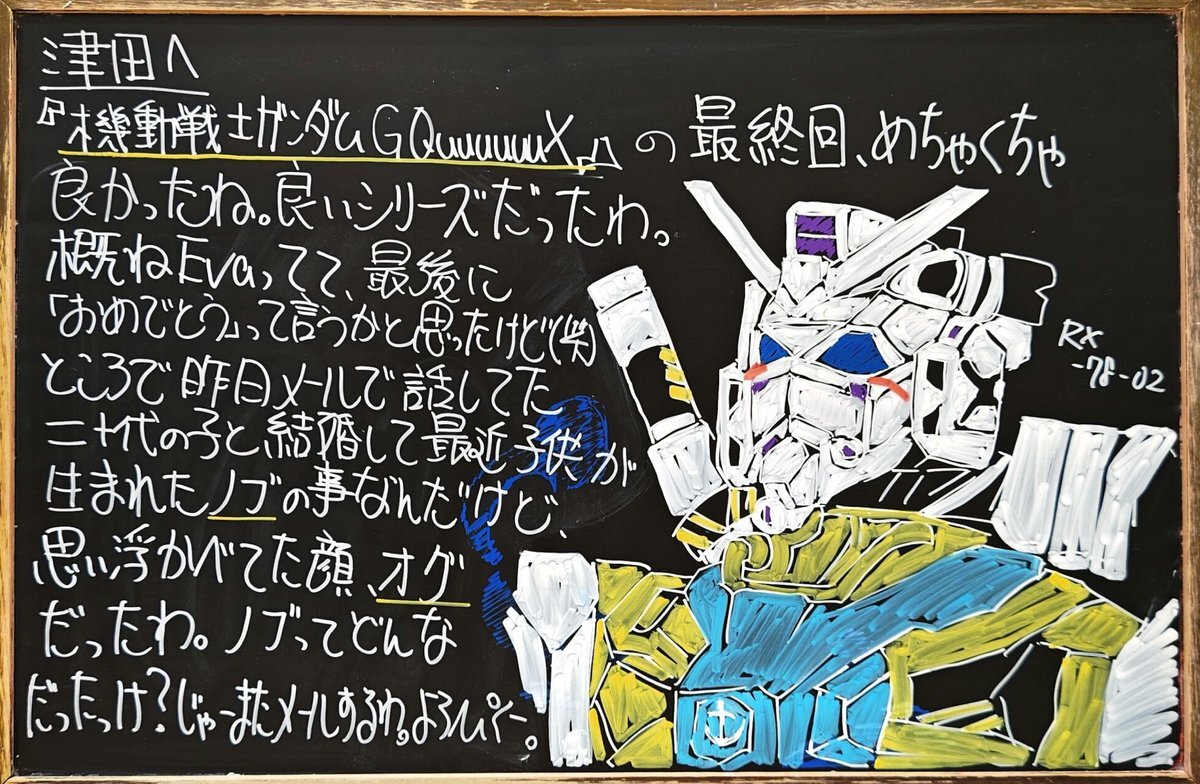 津田へ
『機動戦士ガンダムGQuuuuuuX』の最終回、めちゃくちゃ
良かったね。良いシリーズだったわ。
概ねEvaってて、最後に
「おめでとう」って言うかと思ったけど(笑)
ところで昨日メールで話してた
二十代の子と結婚して最近子供が
生まれたノブの事なんだけど、
思い浮かべてた顔、オグ
だったわ。ノブってどんな
だったっけ?じゃーまたメールするわ。よろぴくー。
RX
-78-02